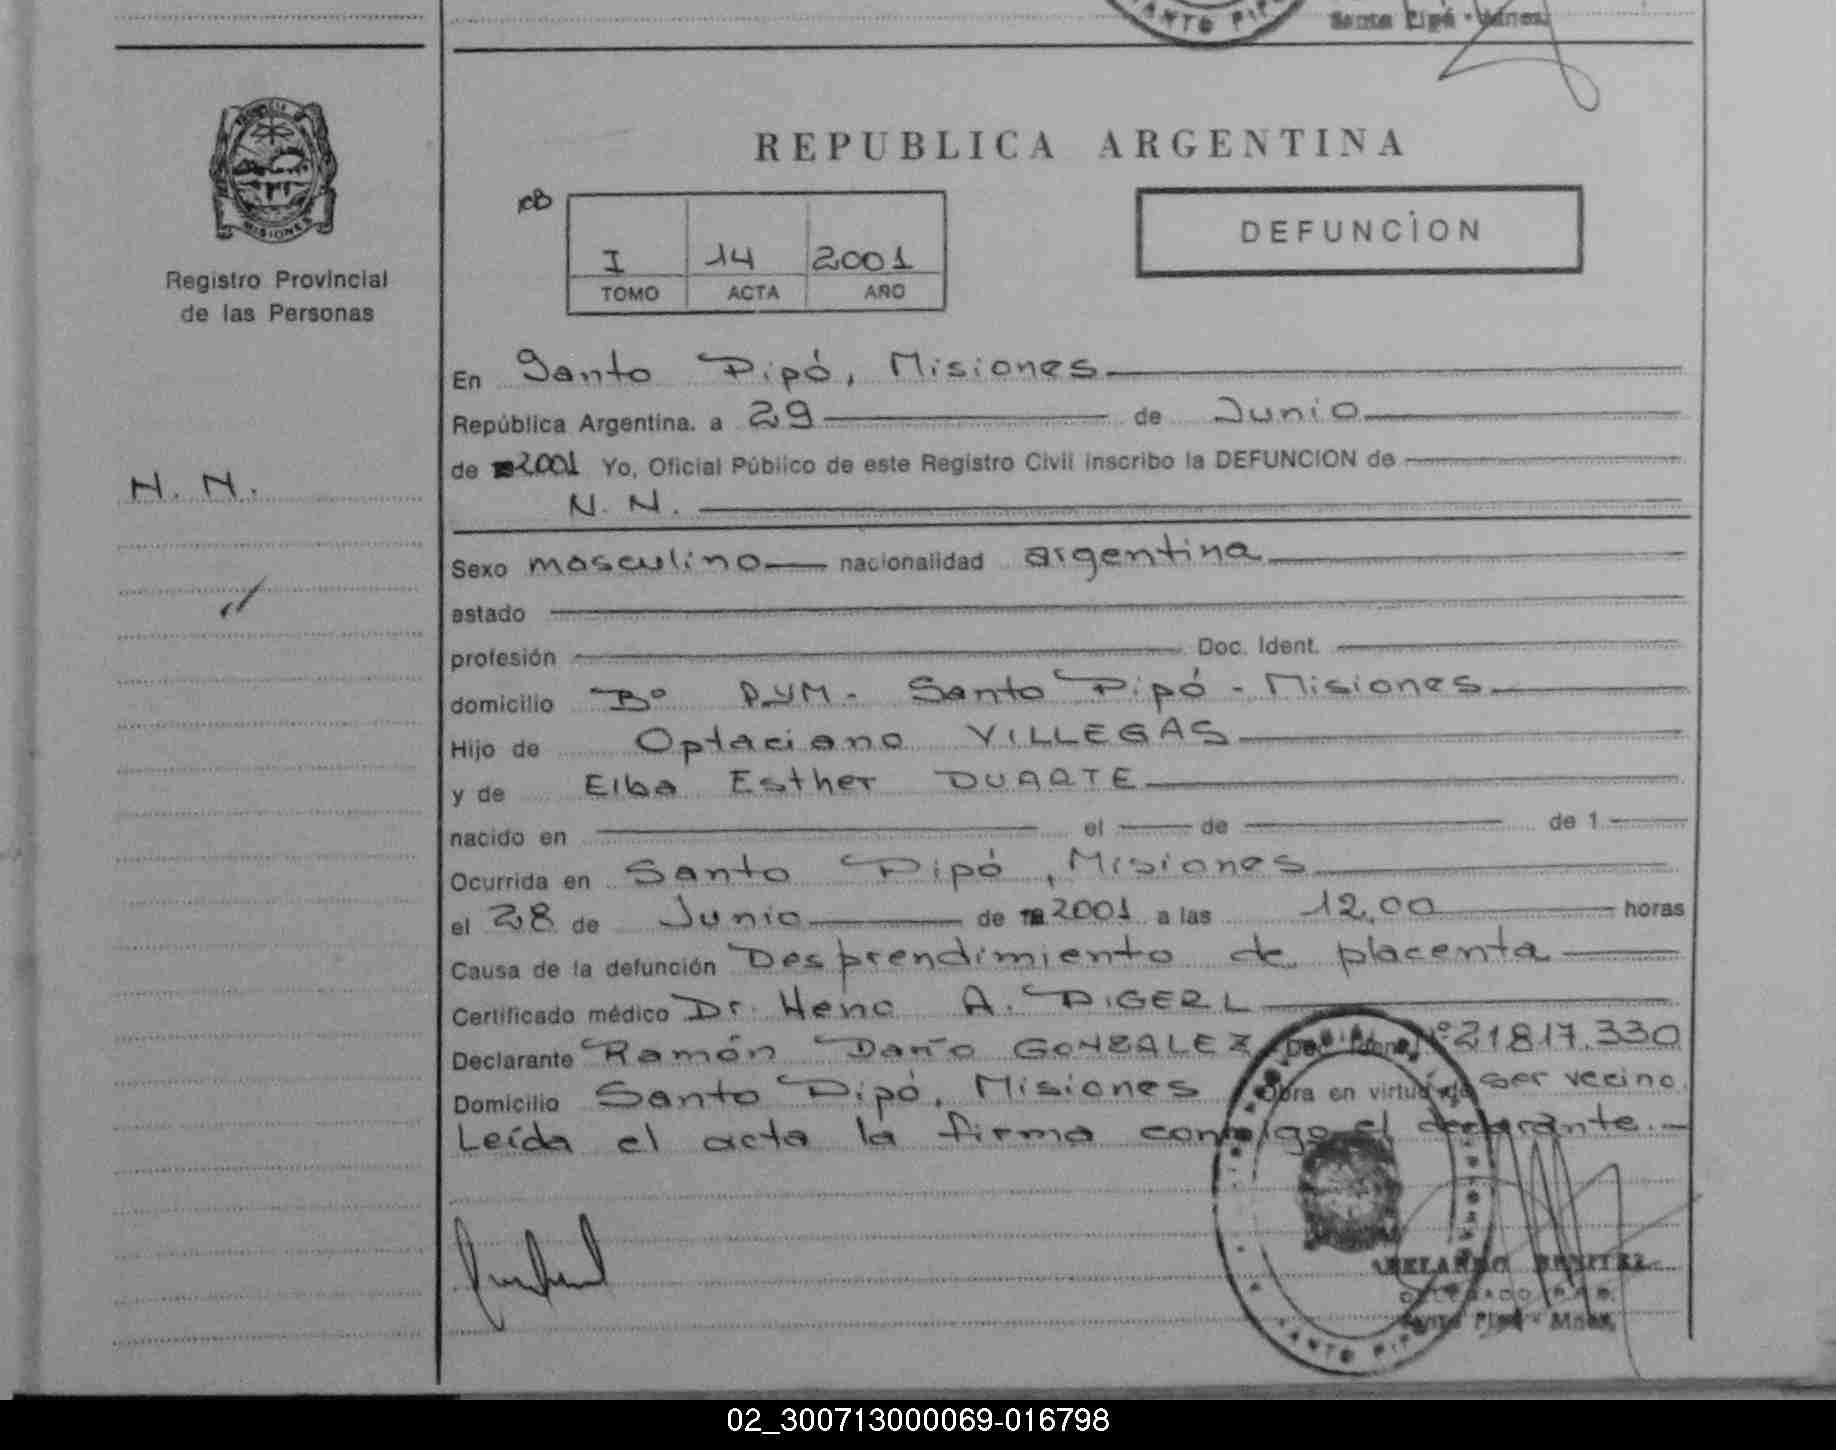 Santo Pipó - Mnes.
SANTO PIPO
PROVINCIA D
MISIONES
Registro Provincial
de las Personas
REPUBLICA ARGENTINA
I 14 2001
TOMO ACTA AÑO
DEFUNCION
En Santo Pipó, Misiones
República Argentina. a 29 de Junio
de 2001 Yo, Oficial Público de este Registro Civil inscribo la DEFUNCION de
N. N.
N. N.
Sexo masculino nacionalidad argentina
estado
profesión Doc. Ident.
domicilio Bº P.y M. Santo Pipó - Misiones
Hijo de Optaciano VILLEGAS
y de Elba Esther DUARTE
nacido en el de de 1
Ocurrida en Santo Pipó, Misiones
el 28 de Junio de 2001 a las 12,00 horas
Causa de la defunción Desprendimiento de placenta
Certificado médico Dr. A. PIGERL
Declarante Ramón Darío GONZALEZ Doc. Iden. Nº 21.817.330
Domicilio Santo Pipó, Misiones Obra en virtud de ser vecino.
Leída el acta la firma conmigo el declarante.-
BENITEZ
DELEGADO R.P.P.
Santo Pipó - Mnes.
SANTO PIPO
02_300713000069-016798